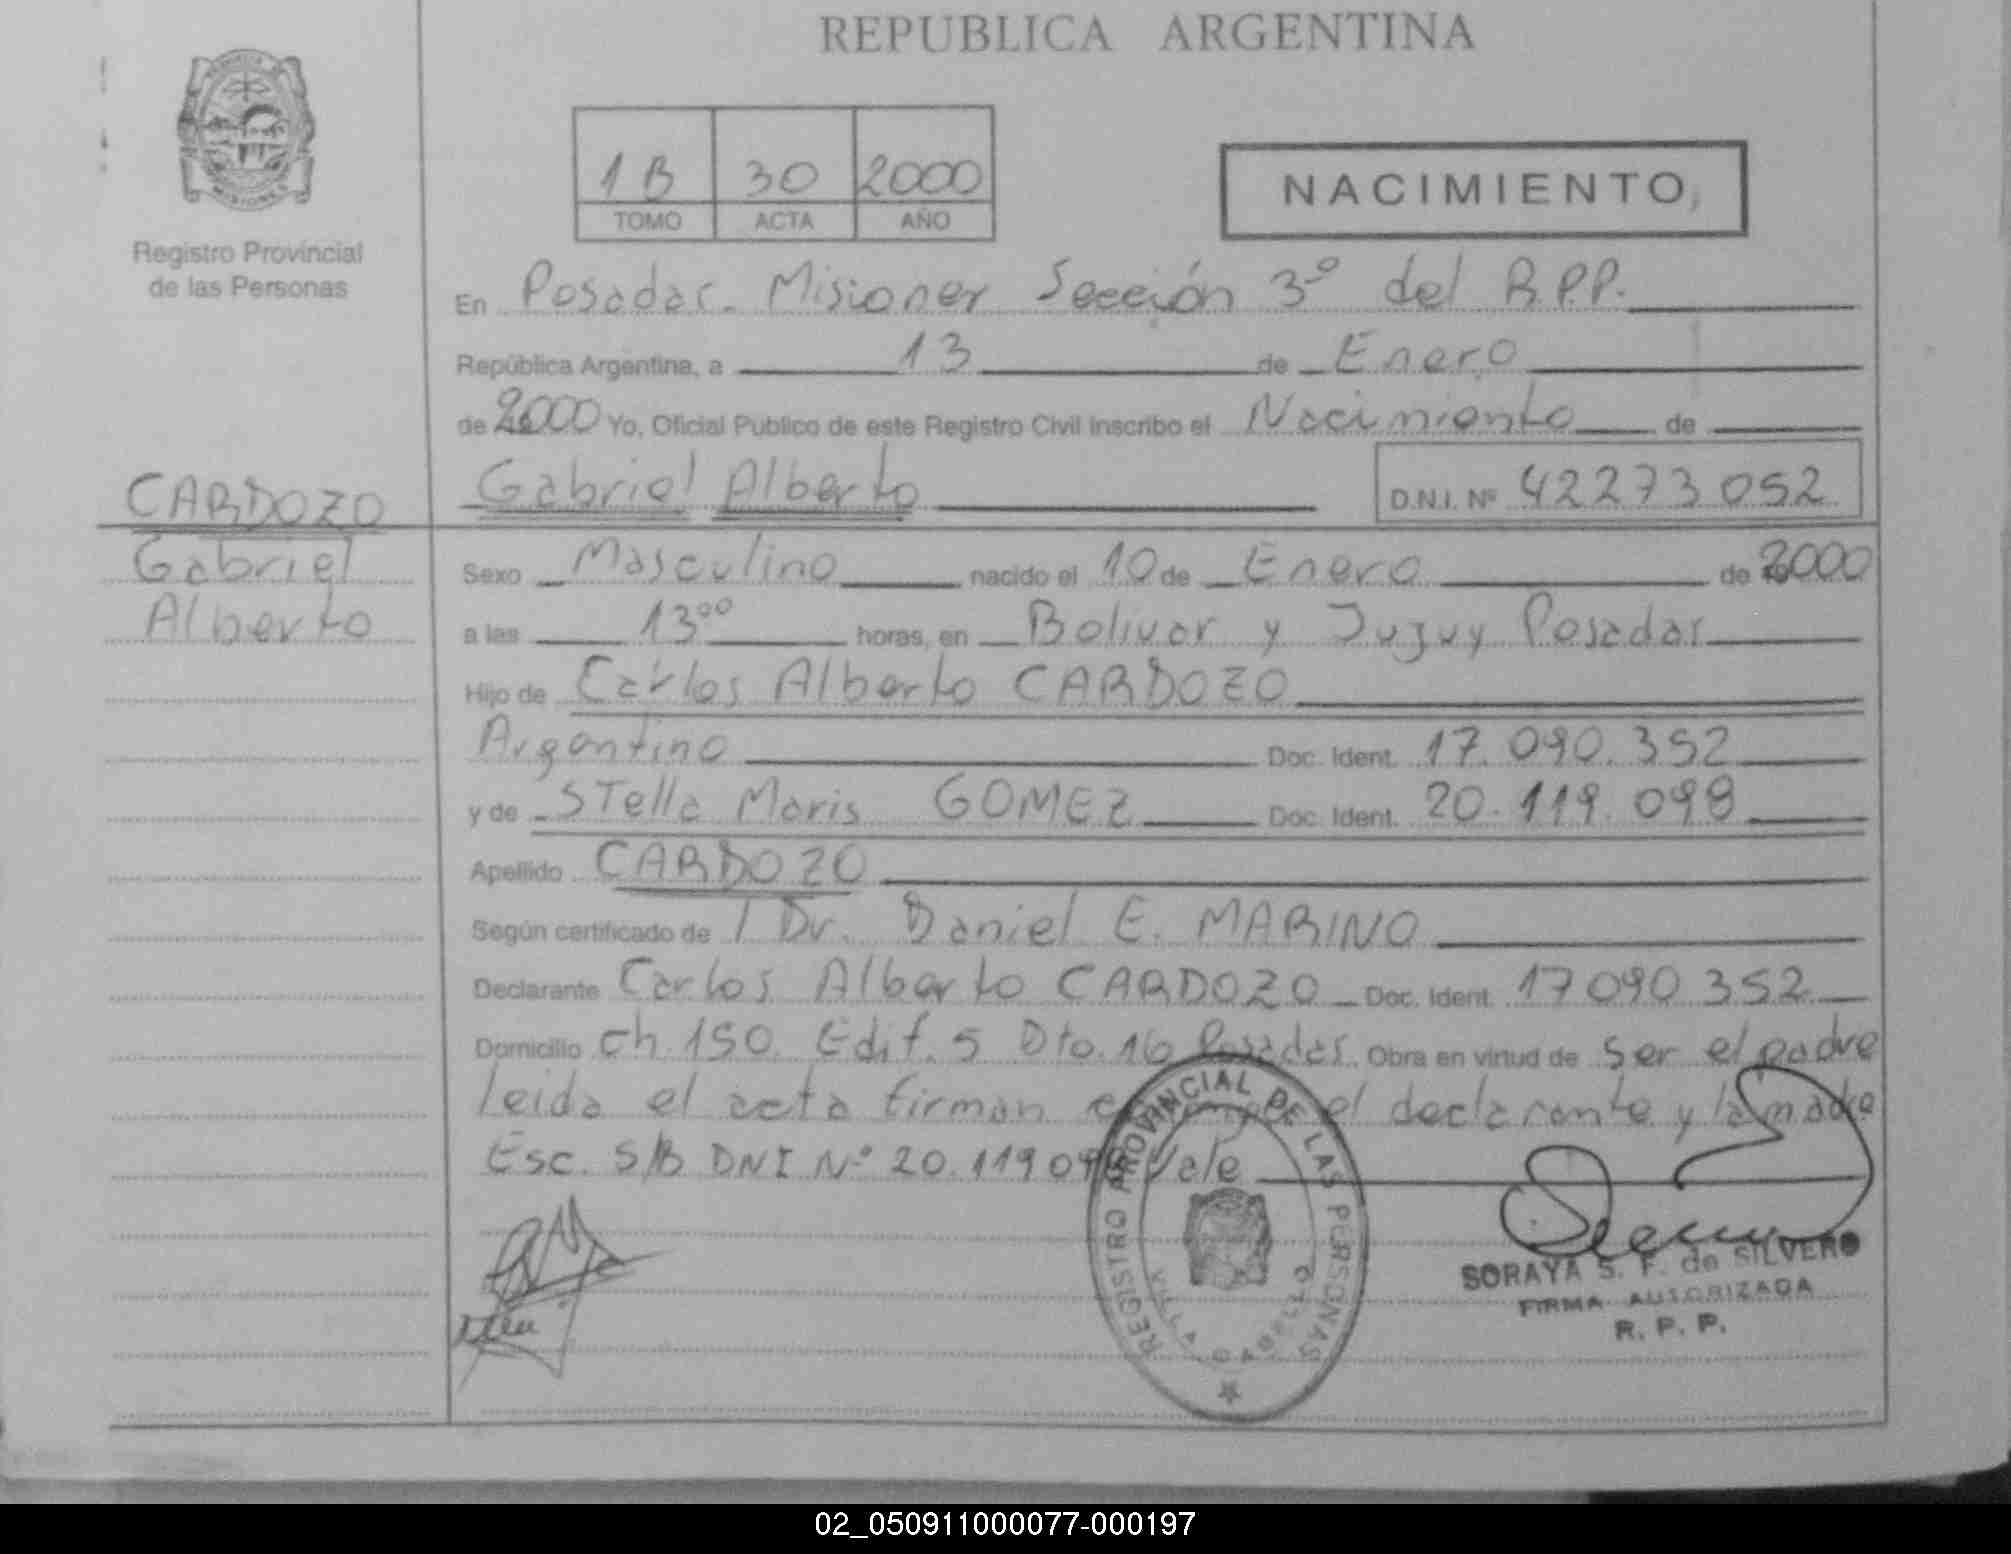 REPUBLICA ARGENTINA
1B 30 2000
TOMO ACTA AÑO
NACIMIENTO
Registro Provincial
de las Personas
En Posadas. Misiones Sección 3º del R.P.P.
República Argentina, a 13 de Enero
de 2000 Yo, Oficial Publico de este Registro Civil inscribo el Nacimiento de
CARDOZO
Gabriel
Alberto
Gabriel Alberto D.N.I. Nº 42273052
Sexo Masculino nacido el 10 de Enero de 2000
a las 13⁰⁰ horas, en Bolivar y Jujuy Posadas
Hijo de Carlos Alberto CARDOZO
Argentino Doc. Ident. 17.090.352
y de STella Maris GOMEZ Doc. Ident. 20.119.098
Apellido CARDOZO
Según certificado de / Dr. Daniel E. MARINO
Declarante Carlos Alberto CARDOZO Doc. Ident. 17090352
Domicilio Ch. 150. Edif. 5 Dto. 16 Posadas. Obra en virtud de ser el padre
leida el acta firman el declarante y la madre
Esc. S/B DNI Nº 20.119098 Vale
REGISTRO PROVINCIAL DE LAS PERSONAS
VILLA CABELLO
SORAYA S. F. de SILVERO
FIRMA AUTORIZADA
R. P. P.
02_050911000077-000197